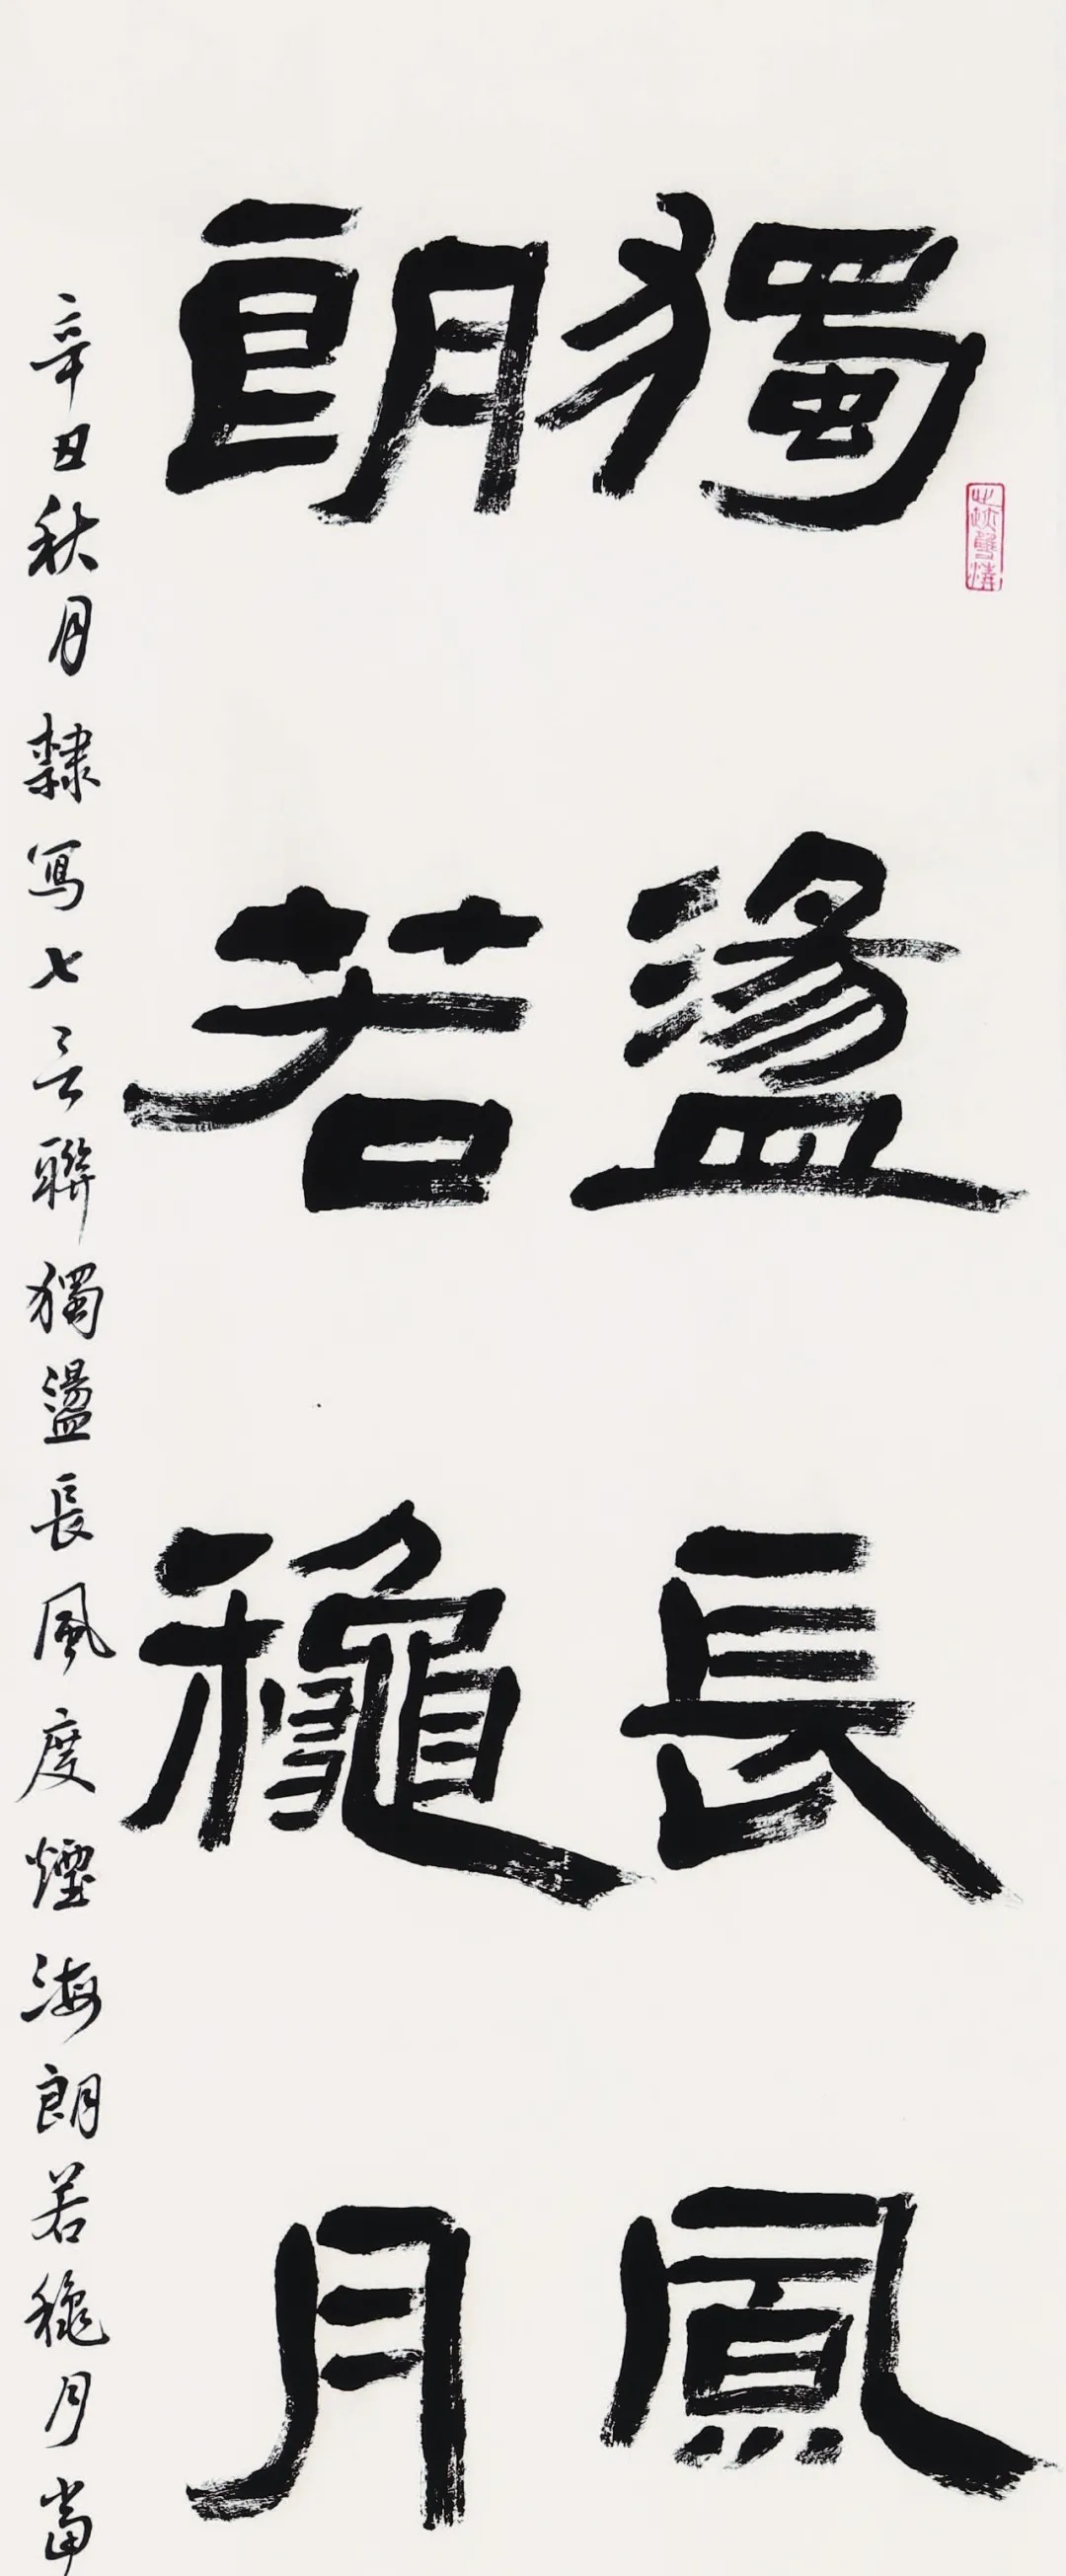 獨盪長鳳
朗若龝月
辛丑秋月隸寫七言聯獨盪長風度煙海朗若龝月當